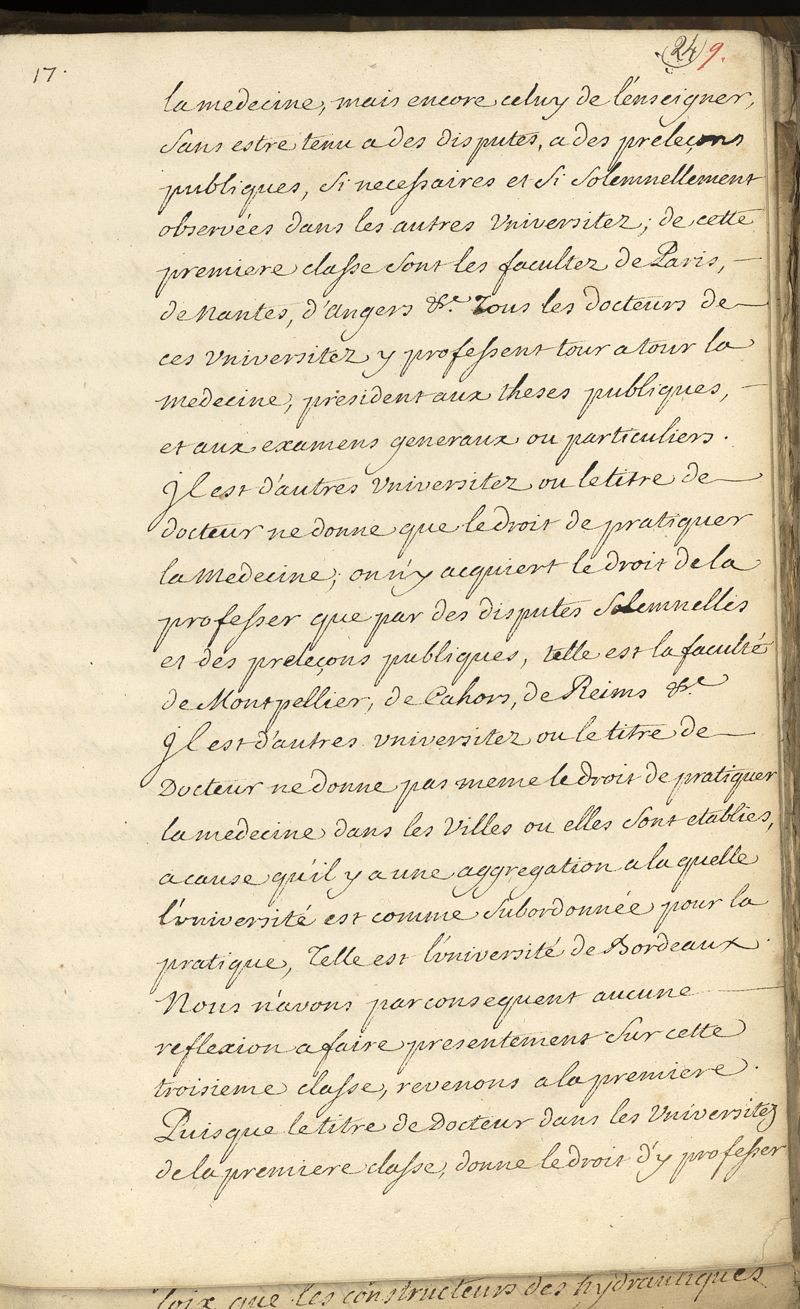 17.
24 9.
la medecine, mais encore celuy de l'enseigner,
sans estre tenu a des disputes, a des preleçons
publiques, si necessaires et si solemnellement
observées dans les autres Universitez; de cette
premiere classe sont les facultez de Paris, —
de Nantes, d'Angers &c. Tous les docteurs de —
ces Universitez y professent tour a tour la
medecine, president aux theses publiques, —
et aux examens generaux ou particuliers.
Il est d'autres Universitez ou le titre de —
docteur ne donne que le droit de pratiquer
la Medecine; on n'y acquiert le droit de la
professer que par des disputes solemnelles
et des preleçons publiques, telle est la faculté
de Montpellier, de Cahors, de Reims &c.
Il est d'autres universitez ou le titre de —
Docteur ne donne pas meme le droit de pratiquer
la medecine dans les Villes ou elles sont etablies,
a cause qu'il y a une aggregation a la quelle
l'université est comme subordonnée pour la
pratique, Telle est l'université de Bordeaux.
Nous n'avons par consequent aucune —
reflexion a faire presentement sur cette
troisieme classe, revenons a la premiere.
Puisque le titre de Docteur dans les Universitez
de la premiere classe, donne le droit d'y professer
loix que les constructeurs des hydrauliques